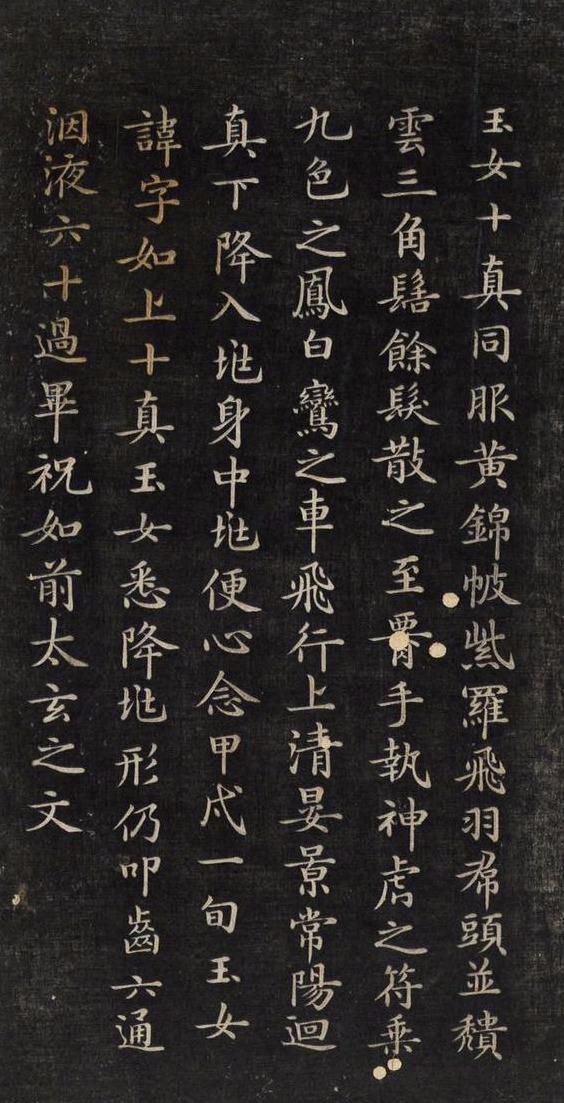 玉女十真同服黄錦帔紫羅飛羽帬頭並穨
雲三角髻餘髮散之至腰手執神虎之符乗
九色之鳳白鸞之車飛行上清晏景常陽迴
真下降入地身中地便心念甲戌一旬玉女
諱字如上十真玉女悉降地形仍叩齒六通
洇液六十過畢祝如前太玄之文